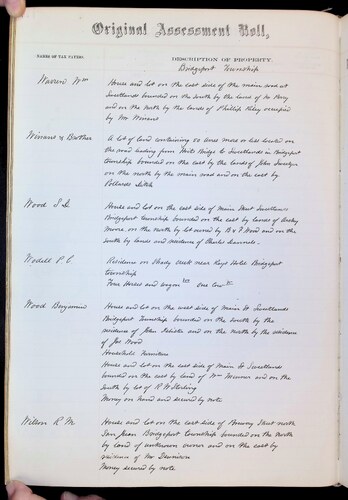 Original Assessment Roll,
NAMES OF TAX PAYERS.
DESCRIPTION OF PROPERTY.
Bridgeport Township
Warren Wm
House and lot on the east side of the main road at
Sweetlands bounded on the south by the land of
and on the north by the lands of Phillip King occupied
by Mr Winans
Winans & Brother
A lot of land containing 50 acres more or less located on
the road leading from Mills Bridge to Sweetlands in Bridgeport
township bounded on the east by the lands of John
on the north by the main road and on the east by
Pollards Ditch
Wood S L
House and lot on the east side of Main Street Sweetlands
Bridgeport township bounded on the east by lands of
Moore, on the north by lot owned by B F Wood and on the
south by lands and residence of Charles
Wedell P C
Residence on Shady Creek near Kays Hotel Bridgeport
township
Four Horses and wagon one cow
Wood Benjamin
House and lot on the west side of Main St Sweetlands
Bridgeport Township bounded on the south by the
residence of John and on the north by the residence
of Joe Wood
Household Furniture
House and lot on the east side of Main St Sweetlands
bounded on the east by land of Wm and on the
south by lot of R W Sterling
Money on hand and secured by note
Wilson R M
House and lot on the east side of Brewery Street north
San Juan Bridgeport township bounded on the north
by land of unknown owner and on the east by
residence of Mr Davidson
Money secured by note